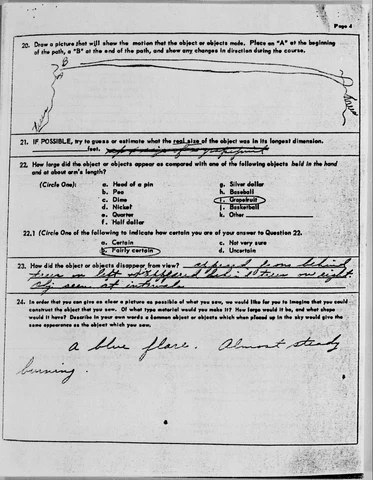 Page 4
20. Draw a picture that will show the motion that the object or objects made. Place an "A" at the beginning
of the path, a "B" at the end of the path, and show any changes in direction during the course.
B
21. IF POSSIBLE, try to guess or estimate what the real size of the object was in its longest dimension.
feet.
22. How large did the object or objects appear as compared with one of the following objects held in the hand
and at about arm's length?
(Circle One):
a. Head of a pin
b. Pea
c. Dime
d. Nickel
e. Quarter
f. Half dollar
g. Silver dollar
h. Baseball
i. Grapefruit
j. Basketball
k. Other
22.1 (Circle One of the following to indicate how certain you are of your answer to Question 22.
a. Certain
b. Fairly certain
c. Not very sure
d. Uncertain
23. How did the object or objects disappear from view? appeared from behind
trees on left disappeared behind trees on right
obj seen at intervals
24. In order that you can give as clear a picture as possible of what you saw, we would like for you to imagine that you could
construct the object that you saw. Of what type material would you make it? How large would it be, and what shape
would it have? Describe in your own words a common object or objects which when placed up in the sky would give the
same appearance as the object which you saw.
a blue flare. Almost steady
burning.
6